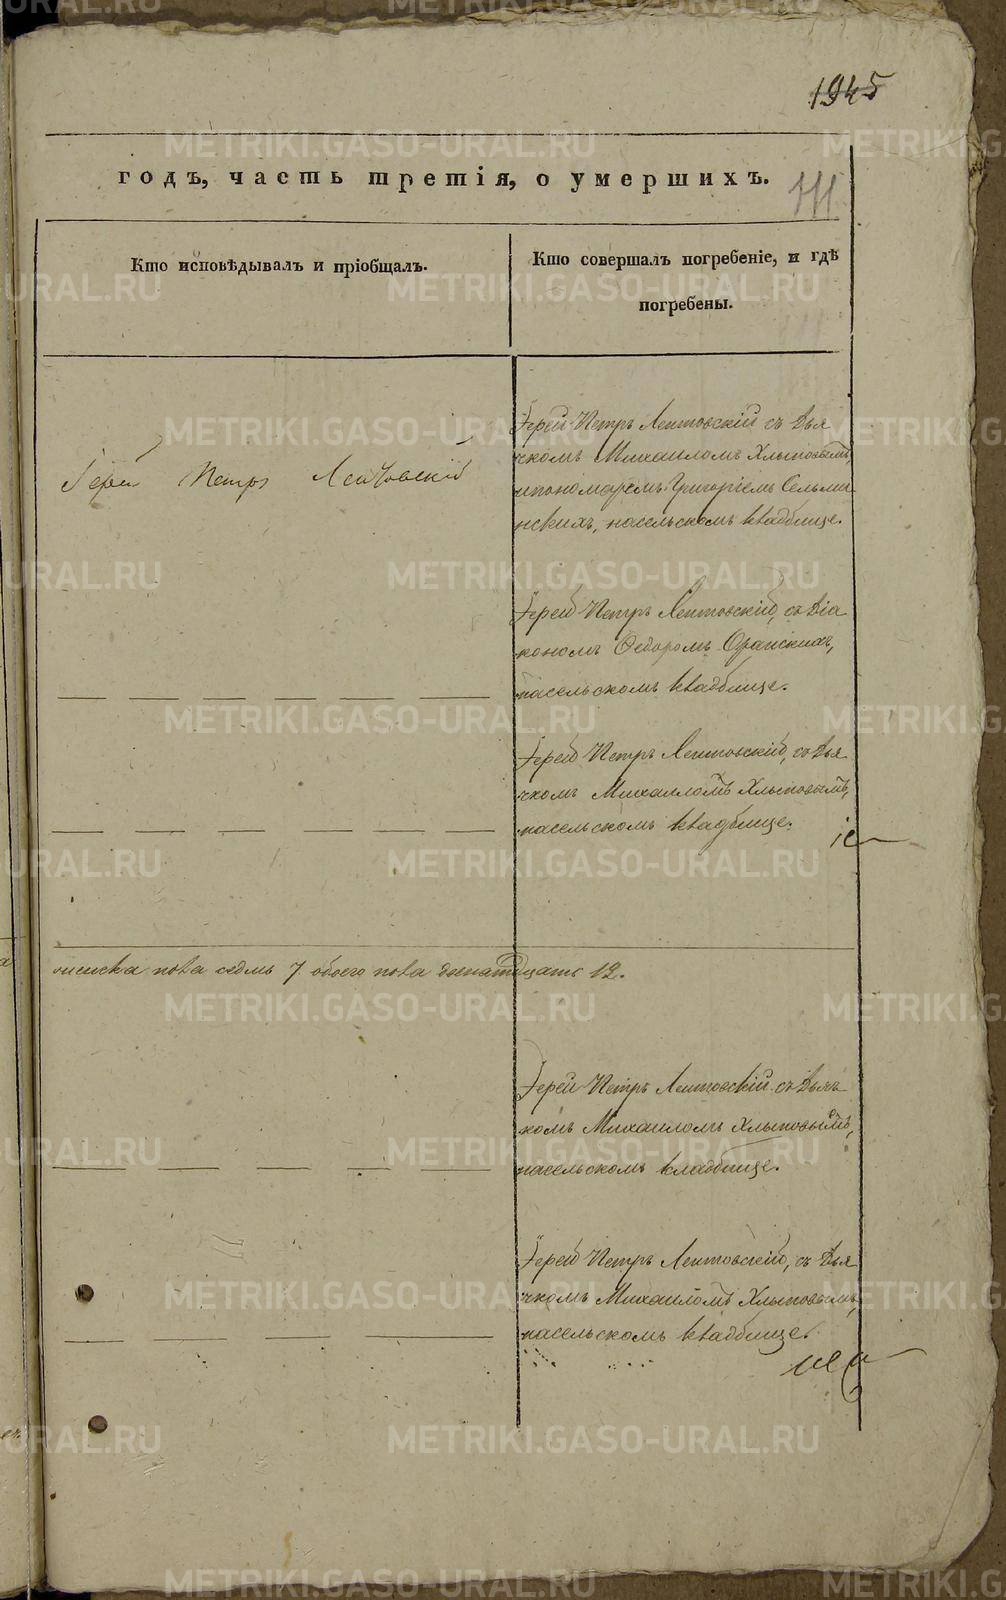 1945
годъ, часть третія, о умершихъ.
111
Кто исповѣдывалъ и пріобщалъ.
Кто совершалъ погребеніе, и гдѣ
погребены.
Іерей Петръ Лентовскій съ Дья
чкомъ Михаиломъ Хлыповымъ,
ипономаремъ Григоріемъ Сельми
нскихъ, насельскомъ кладбище.
Іерей Петръ Лентовскій
Іерей Петръ Лентовскій, съ Діа
кономъ Ѳедоромъ
насельскомъ кладбище.
Іерей Петръ Лентовскій, съ Дья
чкомъ Михаиломъ Хлыповымъ,
насельскомъ кладбище.
женска пола седмь 7 обоего пола двенатцать 12.
Іерей Петръ Лентовскій съ Дьяч
комъ Михаиломъ Хлыповымъ,
насельскомъ кладбище.
Іерей Петръ Лентовскій, съ Дья
чкомъ Михаиломъ Хлыповымъ,
насельскомъ кладбище.
METRIKI.GASO-URAL.RU